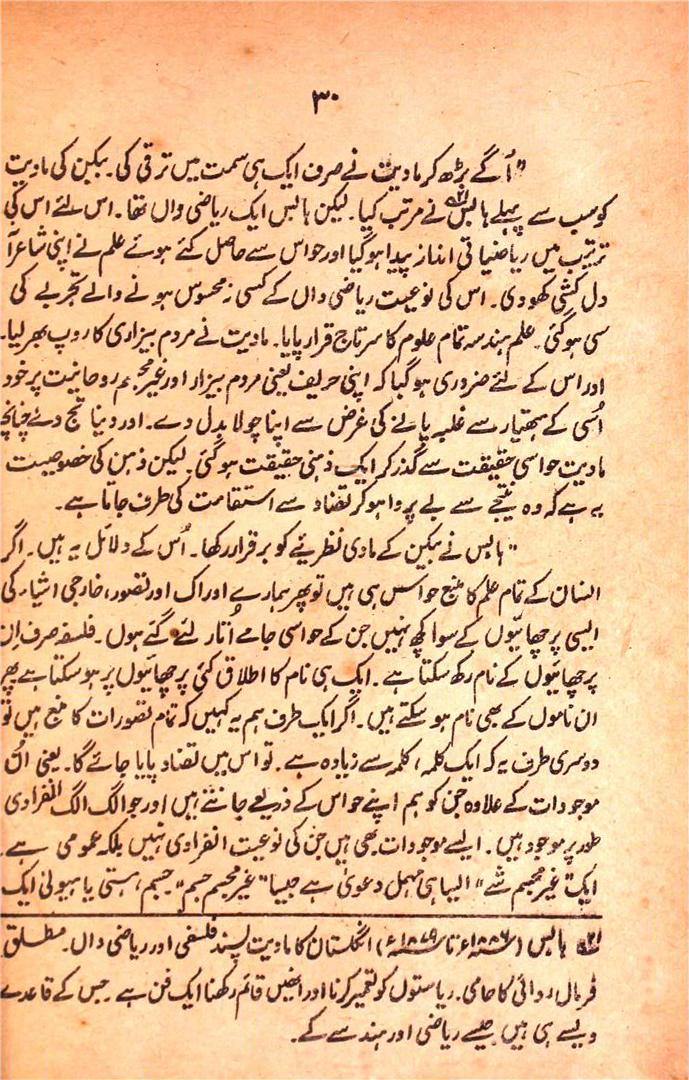 ۳۰
"آگے بڑھ کر مادیت نے صرف ایک ہی سمت میں ترقی کی۔ بیکن کی مادیت
کو سب سے پہلے ہابس نے مرتب کیا۔ لیکن ہابس ایک ریاضی داں تھا۔ اس لئے اس کی
ترتیب میں ریاضیاتی انداز پیدا ہو گیا اور حواس سے حاصل کئے ہوئے علم نے اپنی شاعرآ
دل کشی کھو دی۔ اس کی نوعیت ریاضی داں کے کسی نہ محسوس ہونے والے تجربے کی
سی ہو گئی۔ علم ہندسہ تمام علوم کا سرتاج قرار پایا۔ مادیت نے مردم بیزاری کا روپ بھر لیا۔
اور اس کے لئے ضروری ہو گیا کہ اپنی حریف یعنی مردم بیزار اور غیر مجسم روحانیت پر خود
اُسی کے ہتھیار سے غلبہ پانے کی غرض سے اپنا چولا بدل دے۔ اور دنیا تج دے چنانچہ
مادیت حواسی حقیقت سے گذر کر ایک ذہنی حقیقت ہو گئی۔ لیکن ذہن کی خصوصیت
یہ ہے کہ وہ نتیجے سے بے پروا ہو کر تضاد سے استقامت کی طرف جاتا ہے۔
"ہابس نے بیکن کے مادی نظریئے کو برقرار رکھا۔ اُس کے دلائل یہ ہیں۔ اگر
انسان کے تمام علم کا منبع حواس ہی ہیں تو پھر ہمارے ادراک اور تصور، خارجی اشیاء کی
ایسی پرچھائیوں کے سوا کچھ نہیں جن کے حواسی جامے اُتار لئے گئے ہوں۔ فلسفہ صرف اِن
پرچھائیوں کے نام رکھ سکتا ہے۔ ایک ہی نام کا اطلاق کئی پرچھائیوں پر ہو سکتا ہے پھر
ان ناموں کے بھی نام ہو سکتے ہیں۔ اگر ایک طرف ہم یہ کہیں کہ تمام تصورات کا منبع ہیں تو
دوسری طرف یہ کہ ایک کلمہ، کلمہ سے زیادہ ہے۔ تو اس میں تضاد پایا جائے گا۔ یعنی اُن
موجودات کے علاوہ جن کو ہم اپنے حواس کے ذریعے جانتے ہیں اور جو الگ الگ انفرادی
طور پر موجود ہیں۔ ایسے موجودات بھی ہیں جن کی نوعیت انفرادی نہیں بلکہ عمومی ہے۔
ایک "غیر مجسم شے" ایسا ہی مہمل دعویٰ ہے جیسا "غیر مجسم جسم" جسم، ہستی یا ہیولیٰ ایک
ہابس انگلستان کا مادیت پسند فلسفی اور ریاضی داں۔ مطلق
فرماں روائی کا حامی۔ ریاستوں کو تعمیر کرنا اور انھیں قائم رکھنا ایک فن ہے۔ جس کے قاعدے
ویسے ہی ہیں جیسے ریاضی اور ہندسے کے۔